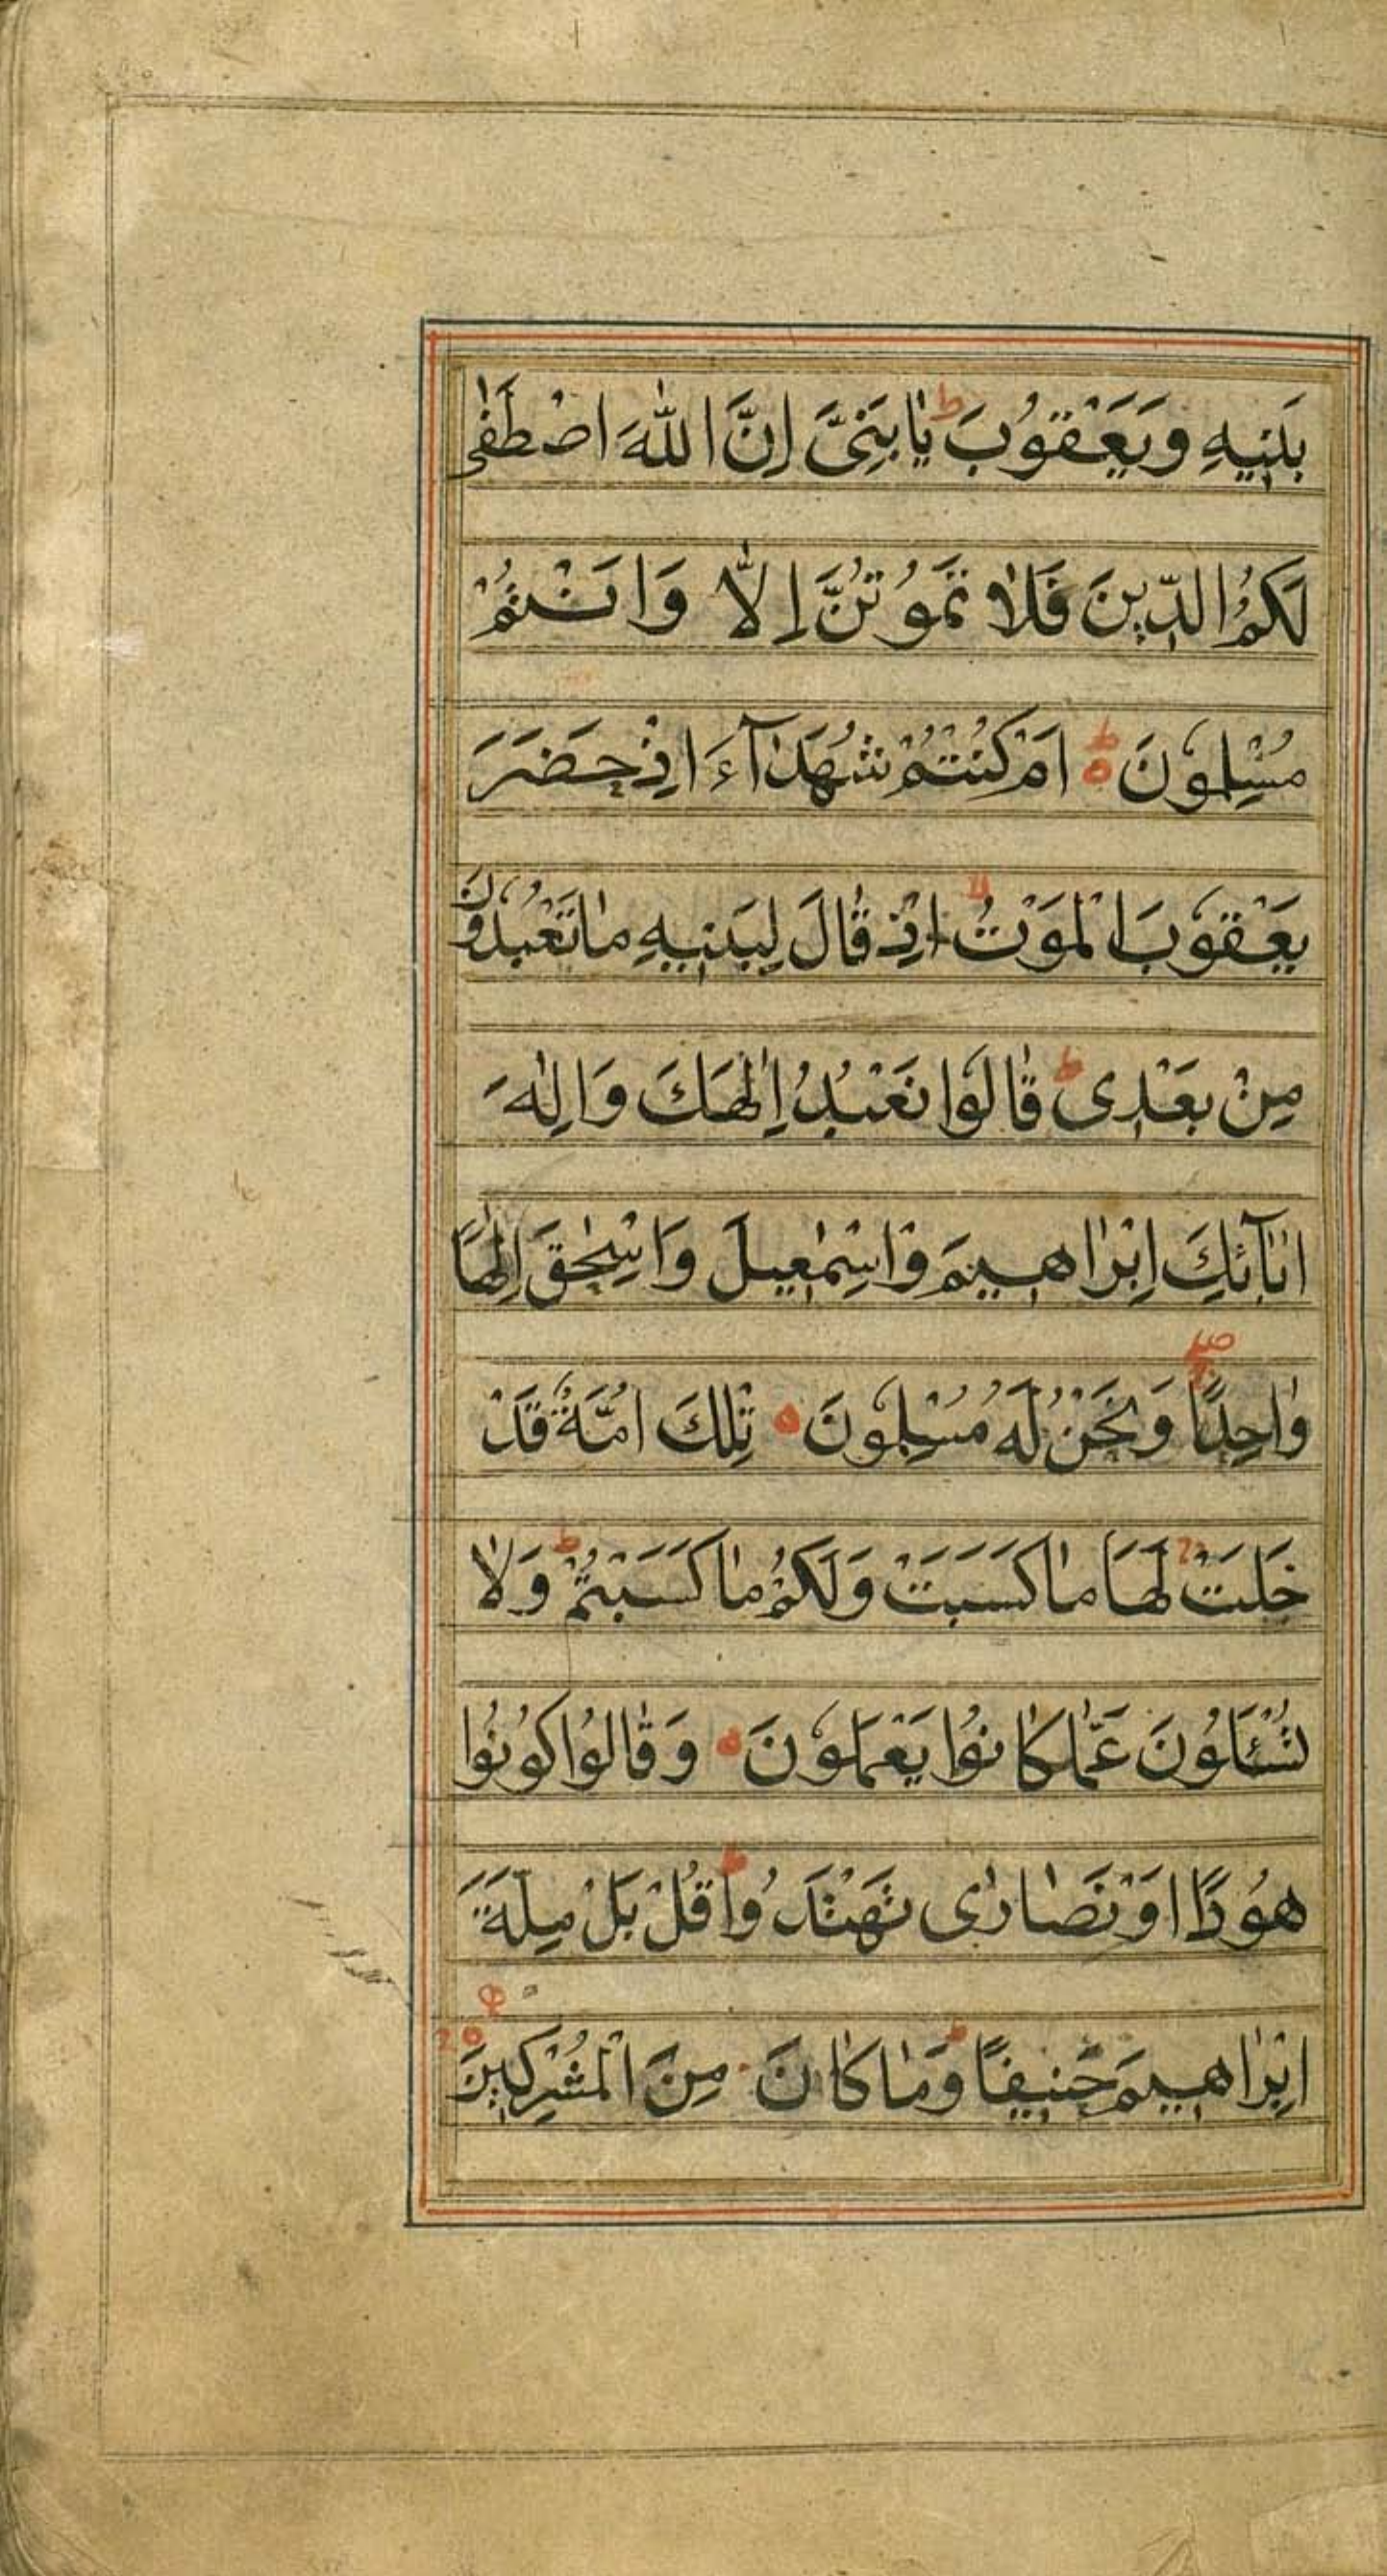 بَنِيهِ وَيَعْقُوبَ ط يٰابَنِيَّ اِنَّ اللّٰهَ اصْطَفٰى
لَكُمُ الدّينَ فَلٰا تَمُوتُنَّ اِلّٰا وَاَنْتُمْ
مُسْلِمُونَ ط اَمْ كُنْتُمْ شُهَدٰآءَ اِذْ حَضَرَ
يَعْقُوبَ الْمَوْتُ لا اِذْ قٰالَ لِبَنيهِ مٰا تَعْبُدُونَ
مِنْ بَعْدي ط قٰالُوا نَعْبُدُ اِلٰهَكَ وَاِلٰهَ
اٰبٰآئِكَ اِبْرٰاهيمَ وَاِسْمٰعيلَ وَاِسْحٰقَ اِلٰهًا
وٰاحِدًا وَنَحْنُ لَهُ مُسْلِمُونَ ه تِلْكَ اُمَّةٌ قَدْ
خَلَتْ ج لَهَا مٰا كَسَبَتْ وَلَكُمْ مٰا كَسَبْتُمْ ط وَلٰا
تُسْئَلُونَ عَمّٰا كٰانُوا يَعْمَلُونَ ه وَقٰالُوا كُونُوا
هُودًا اَوْ نَصٰارٰى تَهْتَدُوا ط قُلْ بَلْ مِلَّةَ
اِبْرٰاهيمَ حَنيفًا ط وَمٰا كٰانَ مِنَ الْمُشْرِكينَ